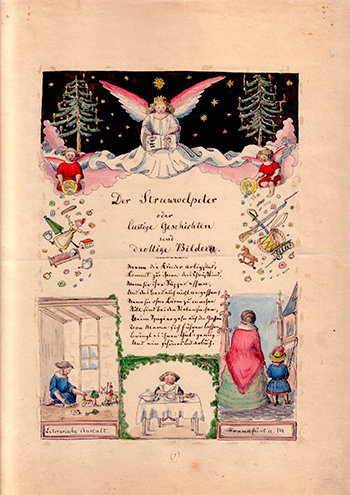 Der Struwwelpeter
oder
lustige Geschichten
und
drollige Bildern.
Wenn die Kinder artig sind,
Kommt zu ihnen das Christkind,
Wenn sie ihre Suppe essen
Und das Brod auch nicht vergessen,
Wenn sie ohne Lärm zu machen
Still sind bei den Siebensachen,
Beim Spaziergehn auf den Gassen
Von Mama sich führen lassen,
bringt es ihnen Gut's genug
Und ein schönes Bilderbuch.
Literarische Anstalt
Frankfurt a. M
(1)